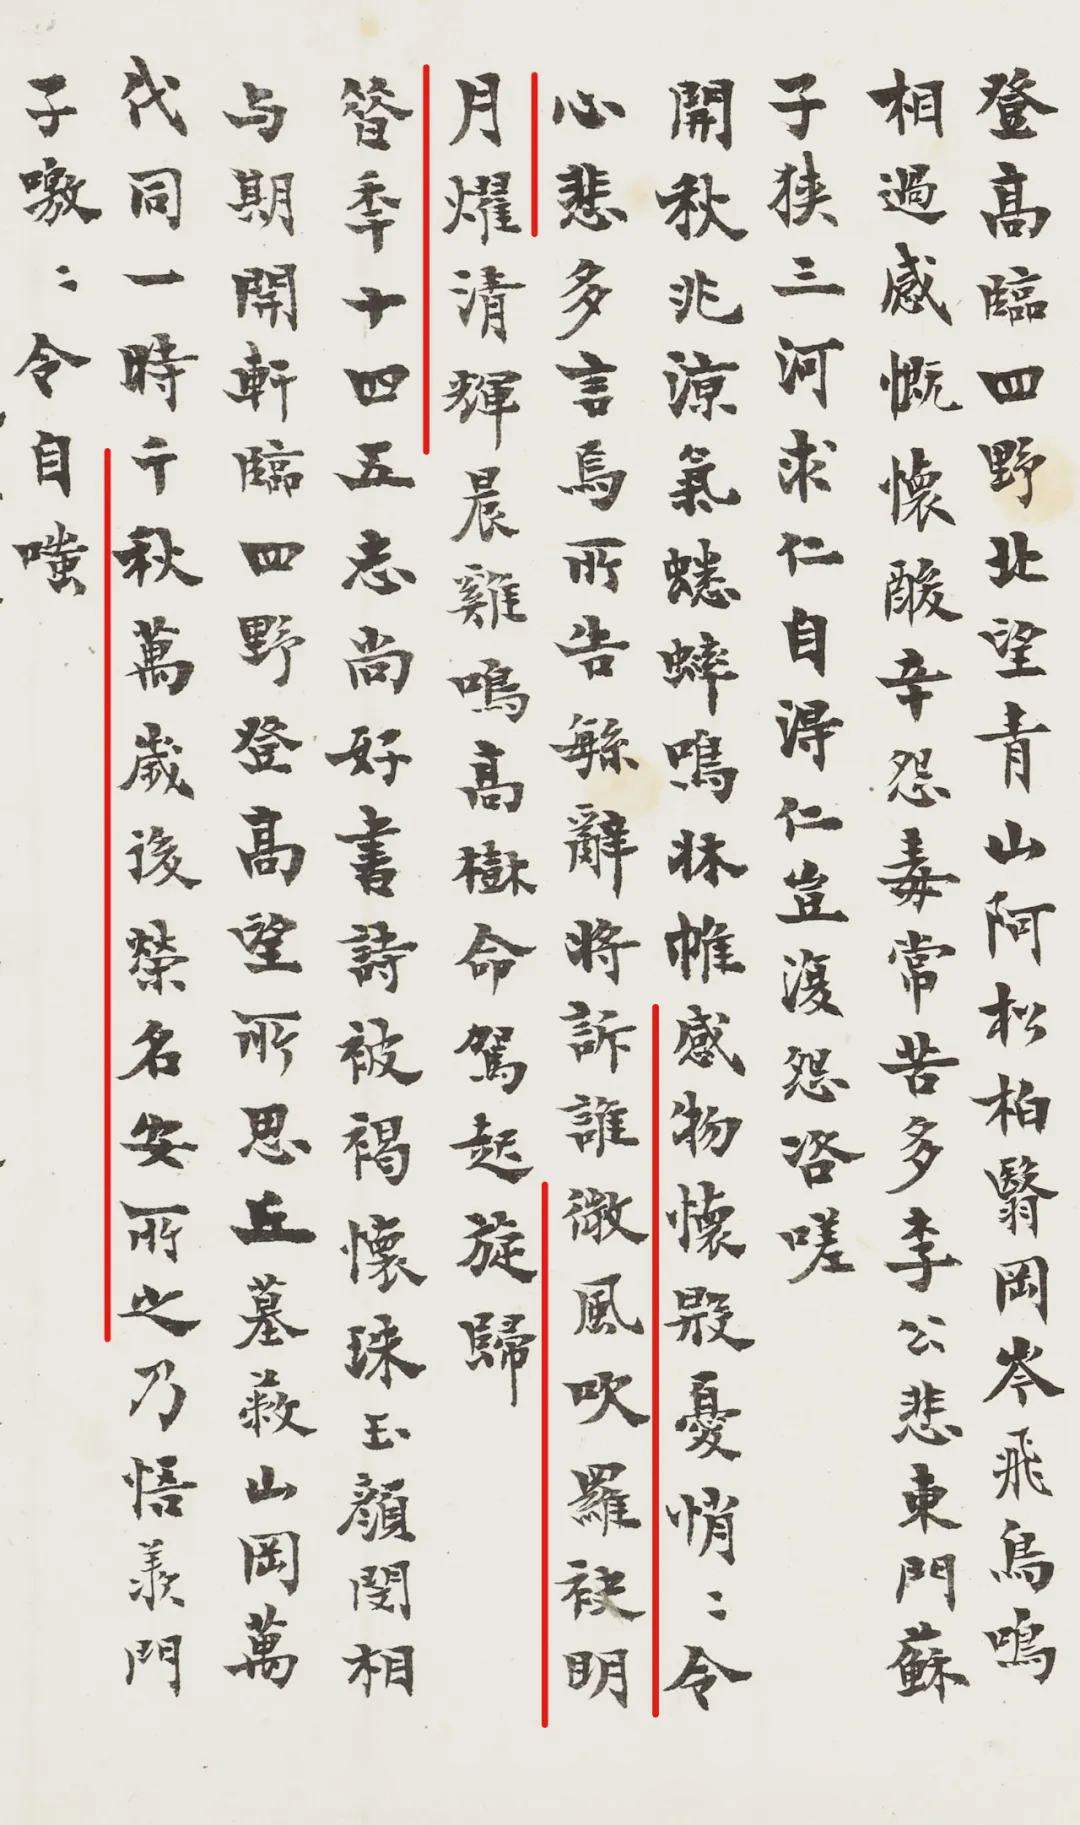 登高臨四野北望青山阿松柏翳岡岑飛鳥鳴
相過感慨懷酸辛怨毒常苦多李公悲東門蘇
子狹三河求仁自得仁豈復怨咨嗟
開秋兆涼氣蟋蟀鳴牀帷感物懷殷憂悄〻令
心悲多言焉所告繇辭將訴誰微風吹羅袂明
月燿清輝晨雞鳴高樹命駕起旋歸
昝秊十四五志尚好書詩被褐懷珠玉顏閔相
与期開軒臨四野登高望所思丘墓蔽山岡萬
代同一時千秋萬歲後榮名安所之乃悟羨門
子噭〻令自嗤